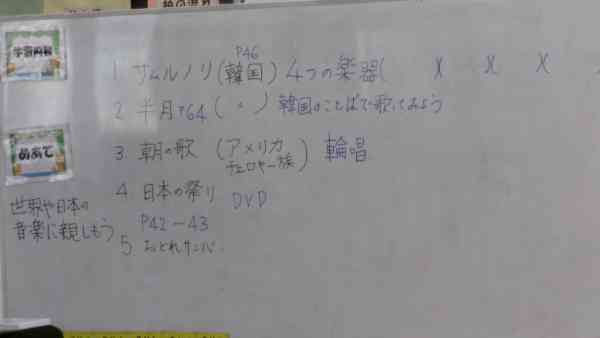 学習内容
P46
1. サムルノリ(韓国) 4つの楽器( X X X
2. 半月P64 ( 〃 ) 韓国のことばで歌ってみよう
めあて
3. 朝の歌 (アメリカ チェロキー族) 輪唱
4. 日本の祭り DVD
P42-43
世界や日本の
音楽に親しもう
5 おどれサンバ